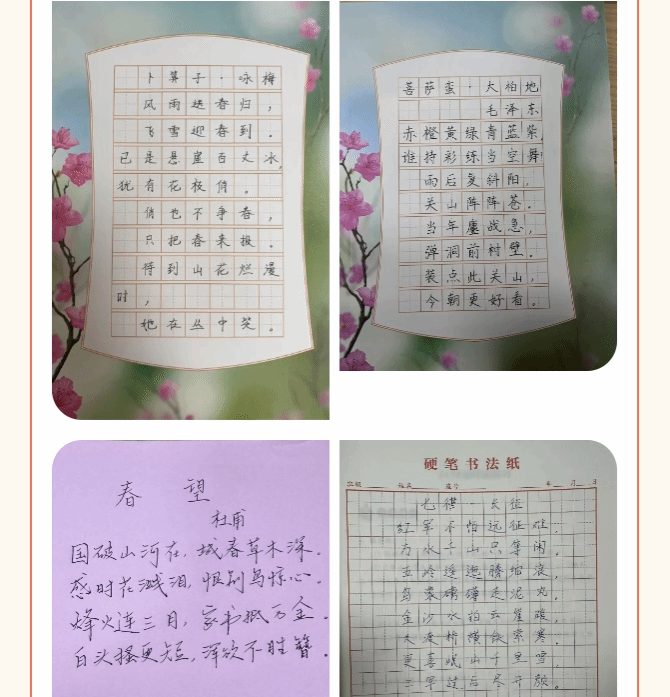 卜算子·咏梅
风雨送春归，
飞雪迎春到。
已是悬崖百丈冰，
犹有花枝俏。
俏也不争春，
只把春来报。
待到山花烂漫
时，
她在丛中笑。
菩萨蛮·大柏地
毛泽东
赤橙黄绿青蓝紫，
谁持彩练当空舞
雨后复斜阳，
关山阵阵苍。
当年鏖战急，
弹洞前村壁。
装点此关山，
今朝更好看。
春望
杜甫
国破山河在，城春草木深。
感时花溅泪，恨别鸟惊心。
烽火连三月，家书抵万金。
白头搔更短，浑欲不胜簪。
硬笔书法纸
年 月 日
七律·长征
红军不怕远征难，
万水千山只等闲。
五岭逶迤腾细浪，
乌蒙磅礴走泥丸
金沙水拍云崖暖，
大渡桥横铁索寒。
更喜岷山千里雪，
三军过后尽开颜。